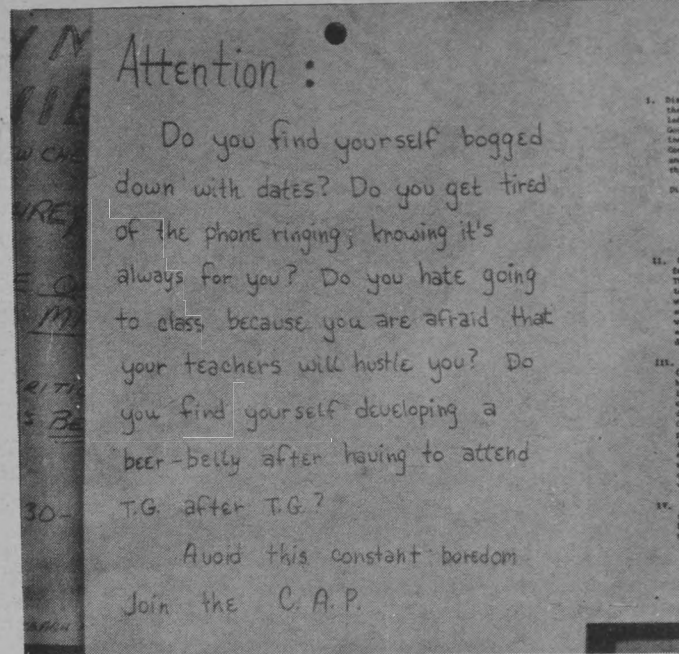 Attention :
Do you find yourself bogged
down with dates? Do you get tired
of the phone ringing, knowing it's
always for you? Do you hate going
to class because you are afraid that
your teachers will hustle you? Do
you find yourself developing a
beer-belly after having to attend
T.G. after T.G.?
Avoid this constant boredom
Join the C.A.P.